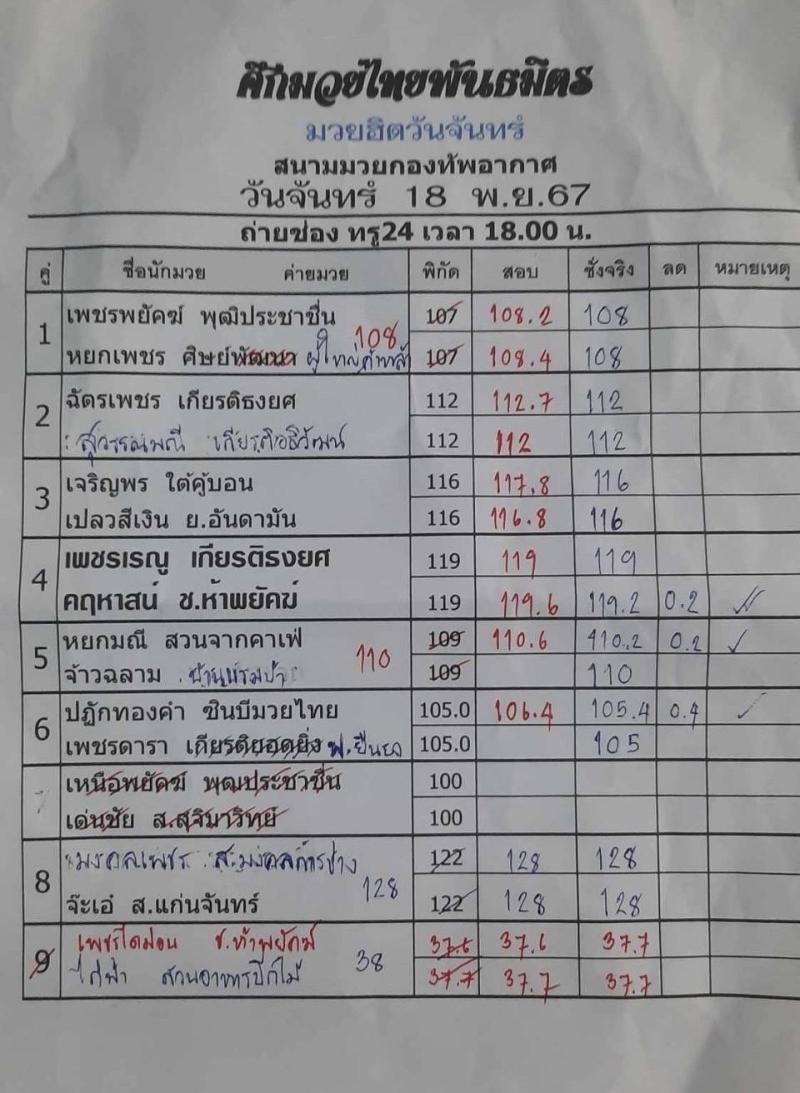 ศึกมวยไทยพันธมิตร
มวยฮิตวันจันทร์
สนามมวยกองทัพอากาศ
วันจันทร์ 18 พ.ย.67
ถ่ายช่อง ทรู24 เวลา 18.00 น.
คู่ ชื่อนักมวย ค่ายมวย พิกัด สอบ ชั่งจริง ลด หมายเหตุ
1 เพชรพยัคฆ์ พุฒิประชาชื่น 108 107 108.2 108
หยกเพชร ศิษย์พัฒนา ผู้ใหญ่ 107 108.4 108
2 ฉัตรเพชร เกียรติธงยศ 112 112.7 112
สุวรรณมณี เกียรติอธิวัฒน์ 112 112 112
3 เจริญพร ใต้คู้บอน 116 117.8 116
เปลวสีเงิน ย.อันดามัน 116 116.8 116
4 เพชรเรณู เกียรติธงยศ 119 119 119
คฤหาสน์ ช.ห้าพยัคฆ์ 119 119.6 119.2 0.2
5 หยกมณี สวนจากคาเฟ่ 110 109 110.6 110.2 0.2
จ้าวฉลาม 109 110
6 ปฏักทองคำ ซินบีมวยไทย 105.0 106.4 105.4 0.4
เพชรดารา เกียรติยอดยิ่ง 105.0 105
เหนือพยัคฆ์ พุฒประชาชื่น 100
เด่นชัย ส.สุจิมาวิทย์ 100
8 มงคลเพชร ส.มงคลการช่าง 128 122 128 128
จ๊ะเอ๋ ส.แก่นจันทร์ 122 128 128
9 เพชรไดม่อน ช.ห้าพยัคฆ์ 38 37.6 37.6 37.7
ไก่ฟ้า สวนอาหารปีกไม้ 37.7 37.7 37.7